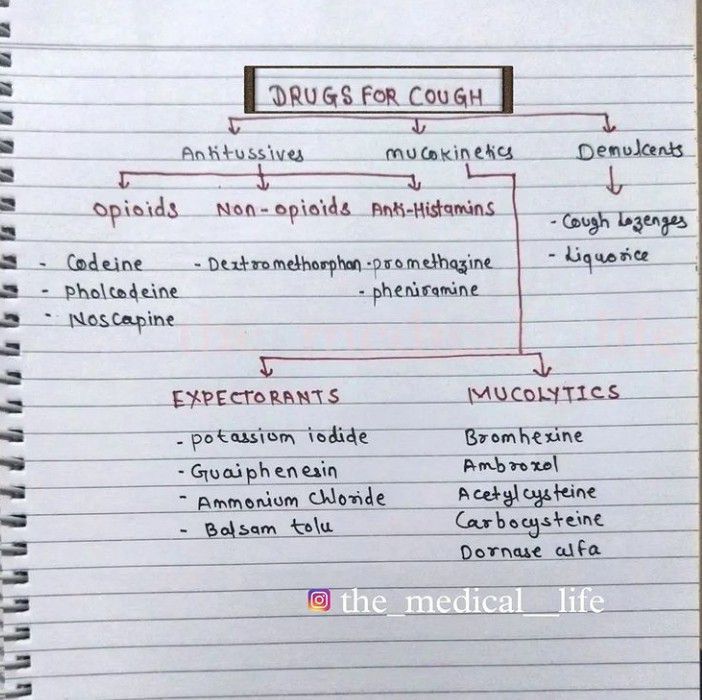 DRUGS FOR COUGH
Antitussives mucokinetics Demulcents
Opioids Non-opioids Anti-Histamins
- Cough Lozenges
- Liquorice
- Codeine - Dextromethorphan - promethazine
- Pholcodeine - pheniramine
- Noscapine
EXPECTORANTS MUCOLYTICS
- potassium iodide Bromhexine
- Guaiphenesin Ambroxol
- Ammonium chloride Acetylcysteine
- Balsam tolu Carbocysteine
Dornase alfa
the_medical__life